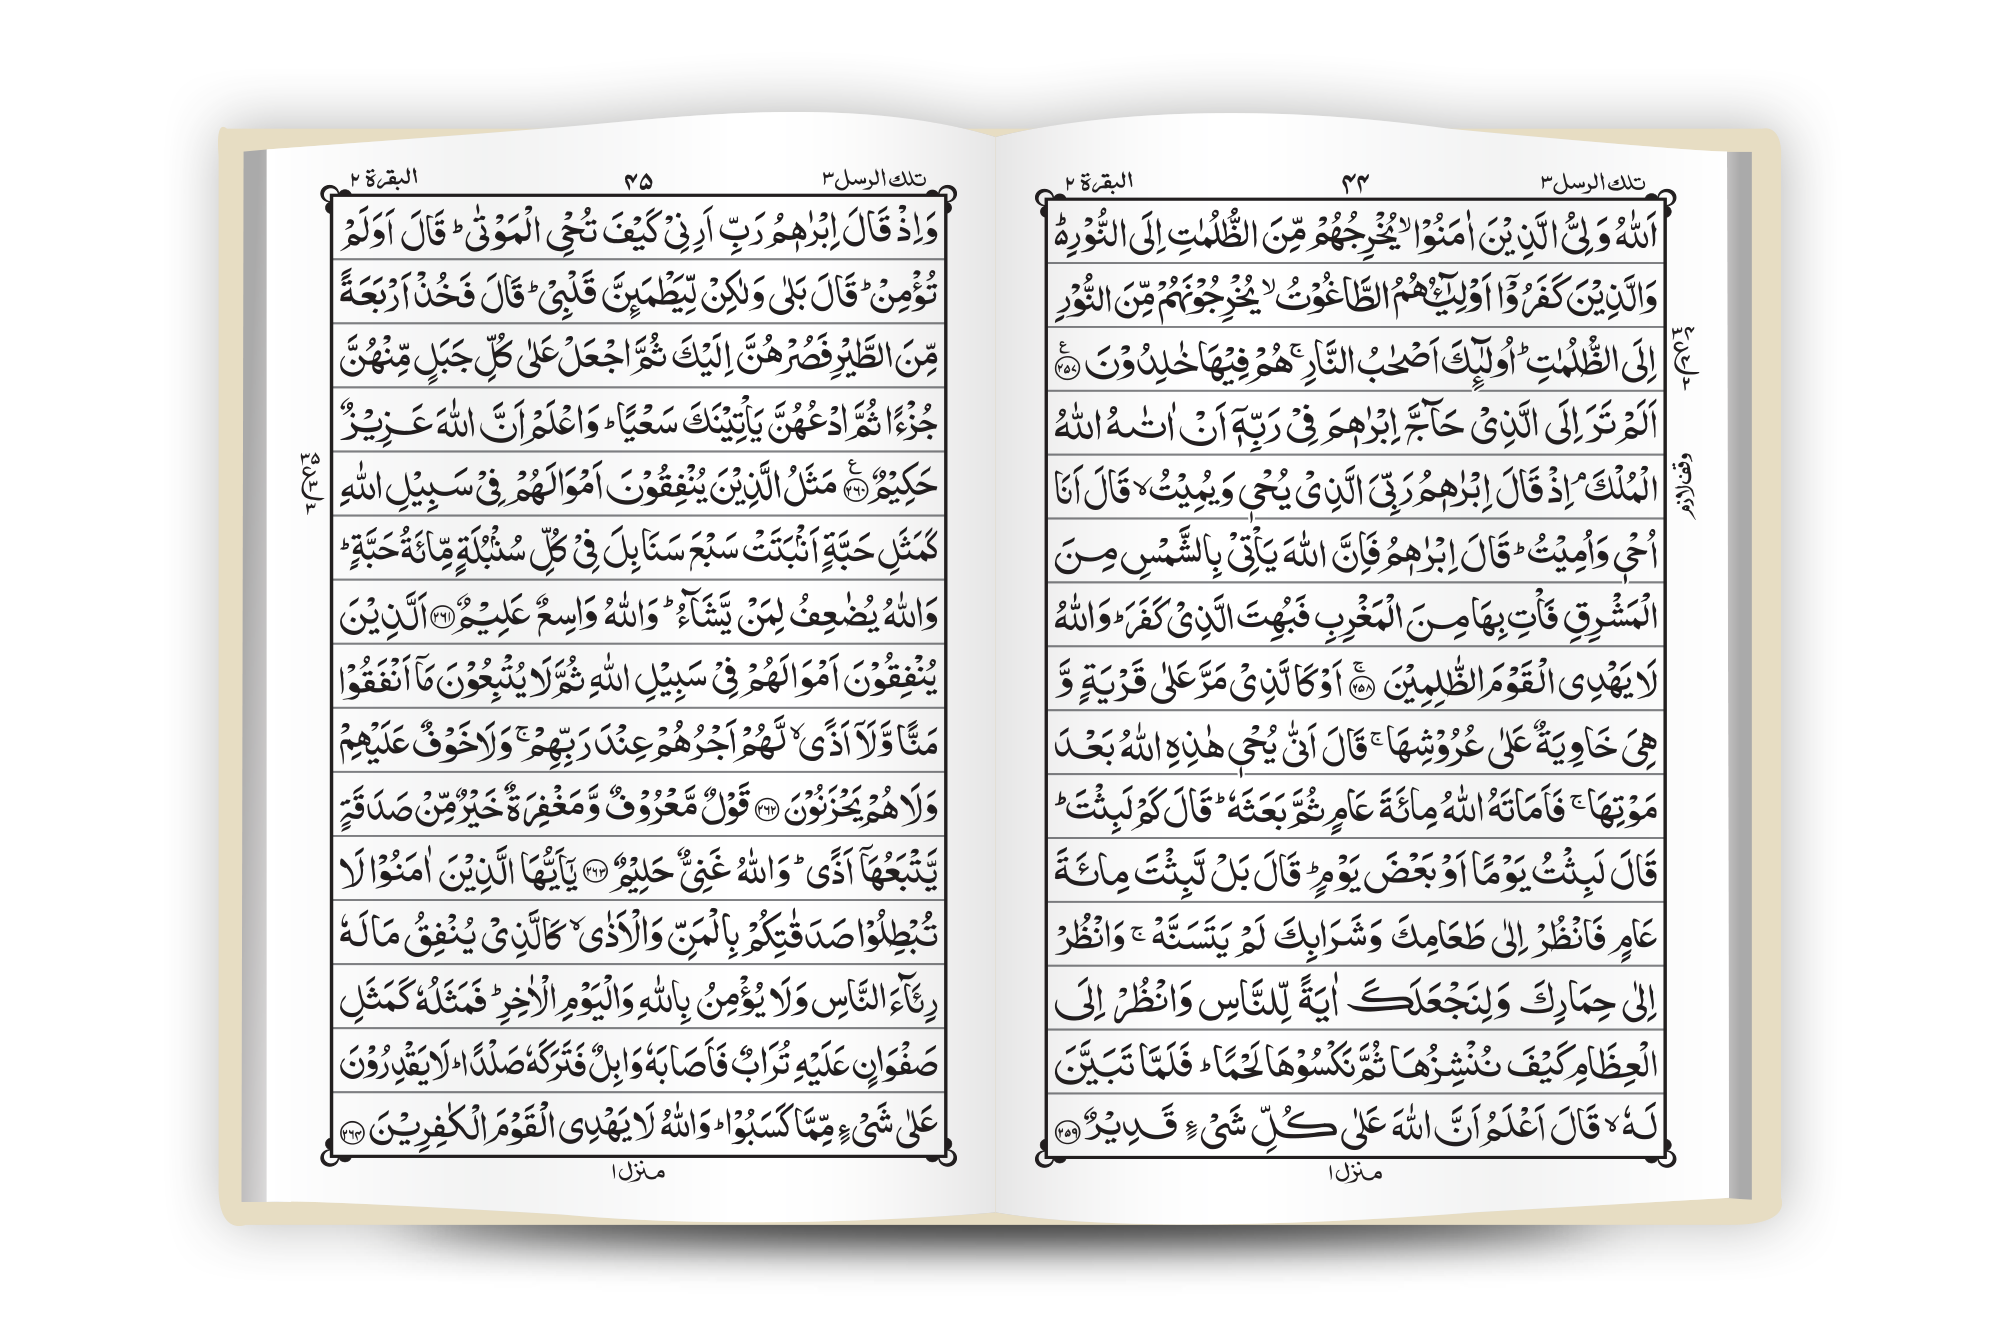 تلك الرسل ٣ ۴۴ البقرة ٢
اَللّٰهُ وَلِىُّ الَّذِيْنَ اٰمَنُوْا ۙ يُخْرِجُهُمْ مِّنَ الظُّلُمٰتِ اِلَى النُّوْرِ ؕ۬
وَالَّذِيْنَ كَفَرُوْۤا اَوْلِيٰٓـُٔهُمُ الطَّاغُوْتُ ۙ يُخْرِجُوْنَهُمْ مِّنَ النُّوْرِ
اِلَى الظُّلُمٰتِ ؕ اُولٰٓئِكَ اَصْحٰبُ النَّارِ ۚ هُمْ فِيْهَا خٰلِدُوْنَ ع ﴿۲۵۷﴾
اَلَمْ تَرَ اِلَى الَّذِىْ حَآجَّ اِبْرٰهٖمَ فِىْ رَبِّهٖۤ اَنْ اٰتٰىهُ اللّٰهُ
الْمُلْكَ ۘ اِذْ قَالَ اِبْرٰهٖمُ رَبِّىَ الَّذِىْ يُحْىٖ وَيُمِيْتُ ۙ قَالَ اَنَا
اُحْىٖ وَاُمِيْتُ ؕ قَالَ اِبْرٰهٖمُ فَاِنَّ اللّٰهَ يَاْتِىْ بِالشَّمْسِ مِنَ
الْمَشْرِقِ فَاْتِ بِهَا مِنَ الْمَغْرِبِ فَبُهِتَ الَّذِىْ كَفَرَ ؕ وَاللّٰهُ
لَا يَهْدِى الْقَوْمَ الظّٰلِمِيْنَ ۚ ﴿۲۵۸﴾ اَوْ كَالَّذِىْ مَرَّ عَلٰى قَرْيَةٍ وَّ
هِىَ خَاوِيَةٌ عَلٰى عُرُوْشِهَا ۚ قَالَ اَنّٰى يُحْىٖ هٰذِهِ اللّٰهُ بَعْدَ
مَوْتِهَا ۚ فَاَمَاتَهُ اللّٰهُ مِائَةَ عَامٍ ثُمَّ بَعَثَهٗ ؕ قَالَ كَمْ لَبِثْتَ ؕ
قَالَ لَبِثْتُ يَوْمًا اَوْ بَعْضَ يَوْمٍ ؕ قَالَ بَلْ لَّبِثْتَ مِائَةَ
عَامٍ فَانْظُرْ اِلٰى طَعَامِكَ وَشَرَابِكَ لَمْ يَتَسَنَّهْ ۚ وَانْظُرْ
اِلٰى حِمَارِكَ وَلِنَجْعَلَكَ اٰيَةً لِّلنَّاسِ وَانْظُرْ اِلَى
الْعِظَامِ كَيْفَ نُنْشِزُهَا ثُمَّ نَكْسُوْهَا لَحْمًا ؕ فَلَمَّا تَبَيَّنَ
لَهٗ ۙ قَالَ اَعْلَمُ اَنَّ اللّٰهَ عَلٰى كُلِّ شَىْءٍ قَدِيْرٌ ﴿۲۵۹﴾
منزل ١
وقف لازم
تلك الرسل ٣ ۴۵ البقرة ٢
وَاِذْ قَالَ اِبْرٰهٖمُ رَبِّ اَرِنِىْ كَيْفَ تُحْىِ الْمَوْتٰى ؕ قَالَ اَوَلَمْ
تُؤْمِنْ ؕ قَالَ بَلٰى وَلٰكِنْ لِّيَطْمَئِنَّ قَلْبِىْ ؕ قَالَ فَخُذْ اَرْبَعَةً
مِّنَ الطَّيْرِ فَصُرْهُنَّ اِلَيْكَ ثُمَّ اجْعَلْ عَلٰى كُلِّ جَبَلٍ مِّنْهُنَّ
جُزْءًا ثُمَّ ادْعُهُنَّ يَاْتِيْنَكَ سَعْيًا ؕ وَاعْلَمْ اَنَّ اللّٰهَ عَزِيْزٌ
حَكِيْمٌ ع ﴿۲۶۰﴾ مَثَلُ الَّذِيْنَ يُنْفِقُوْنَ اَمْوَالَهُمْ فِىْ سَبِيْلِ اللّٰهِ
كَمَثَلِ حَبَّةٍ اَنْۢبَتَتْ سَبْعَ سَنَابِلَ فِىْ كُلِّ سُنْۢبُلَةٍ مِّائَةُ حَبَّةٍ ؕ
وَاللّٰهُ يُضٰعِفُ لِمَنْ يَّشَآءُ ؕ وَاللّٰهُ وَاسِعٌ عَلِيْمٌ ﴿۲۶۱﴾ اَلَّذِيْنَ
يُنْفِقُوْنَ اَمْوَالَهُمْ فِىْ سَبِيْلِ اللّٰهِ ثُمَّ لَا يُتْبِعُوْنَ مَاۤ اَنْفَقُوْا
مَنًّا وَّلَاۤ اَذًى ۙ لَّهُمْ اَجْرُهُمْ عِنْدَ رَبِّهِمْ ۚ وَلَا خَوْفٌ عَلَيْهِمْ
وَلَا هُمْ يَحْزَنُوْنَ ﴿۲۶۲﴾ قَوْلٌ مَّعْرُوْفٌ وَّمَغْفِرَةٌ خَيْرٌ مِّنْ صَدَقَةٍ
يَّتْبَعُهَاۤ اَذًى ؕ وَاللّٰهُ غَنِىٌّ حَلِيْمٌ ﴿۲۶۳﴾ يٰۤاَيُّهَا الَّذِيْنَ اٰمَنُوْا لَا
تُبْطِلُوْا صَدَقٰتِكُمْ بِالْمَنِّ وَالْاَذٰى ۙ كَالَّذِىْ يُنْفِقُ مَالَهٗ
رِئَآءَ النَّاسِ وَلَا يُؤْمِنُ بِاللّٰهِ وَالْيَوْمِ الْاٰخِرِ ؕ فَمَثَلُهٗ كَمَثَلِ
صَفْوَانٍ عَلَيْهِ تُرَابٌ فَاَصَابَهٗ وَابِلٌ فَتَرَكَهٗ صَلْدًا ؕ لَا يَقْدِرُوْنَ
عَلٰى شَىْءٍ مِّمَّا كَسَبُوْا ؕ وَاللّٰهُ لَا يَهْدِى الْقَوْمَ الْكٰفِرِيْنَ ﴿۲۶۴﴾
منزل ١